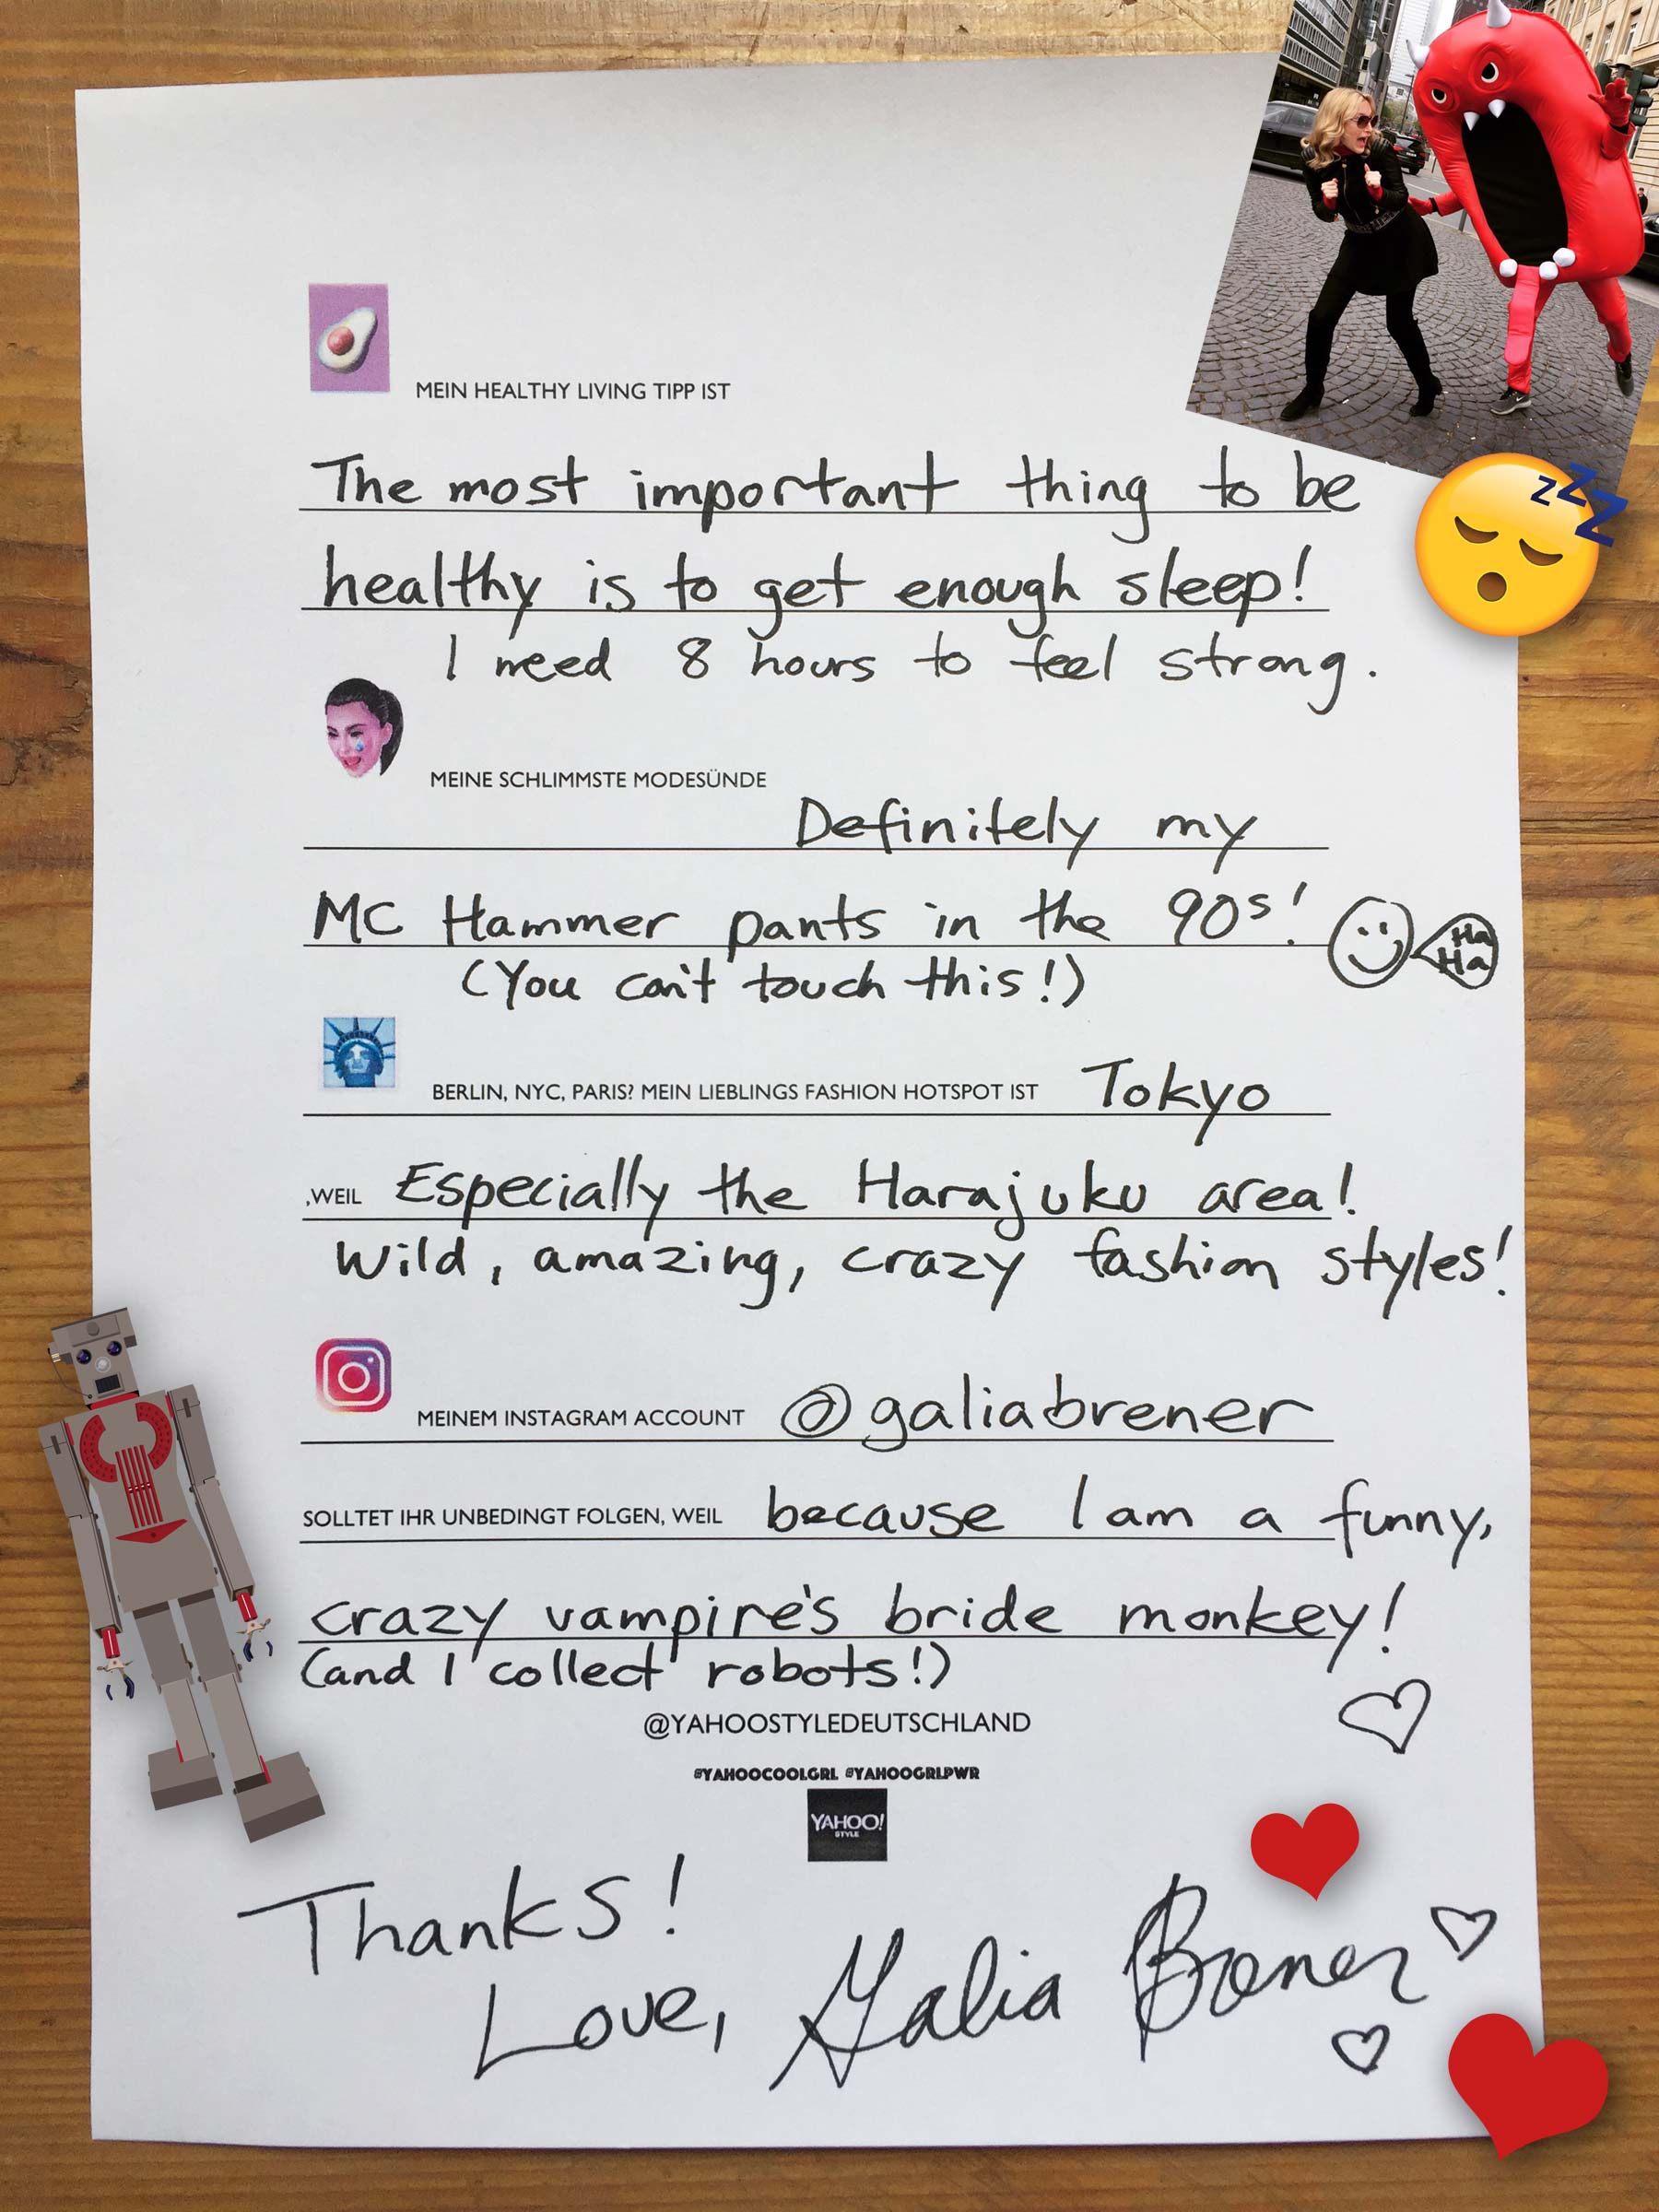 MEIN HEALTHY LIVING TIPP IST
The most important thing to be
healthy is to get enough sleep!
I need 8 hours to feel strong.
zzZ
MEINE SCHLIMMSTE MODESÜNDE
Definitely my
MC Hammer pants in the 90s!
Ha Ha
(You can't touch this!)
BERLIN, NYC, PARIS? MEIN LIEBLINGS FASHION HOTSPOT IST Tokyo
,WEIL Especially the Harajuku area!
Wild, amazing, crazy fashion styles!
MEINEM INSTAGRAM ACCOUNT @galiabrener
SOLLTET IHR UNBEDINGT FOLGEN, WEIL because I am a funny,
crazy vampire's bride monkey!
(and I collect robots!)
@YAHOOSTYLEDEUTSCHLAND
#YAHOOCOOLGRL #YAHOOGRLPWR
YAHOO!
STYLE
Thanks!
Love, Galia Brener